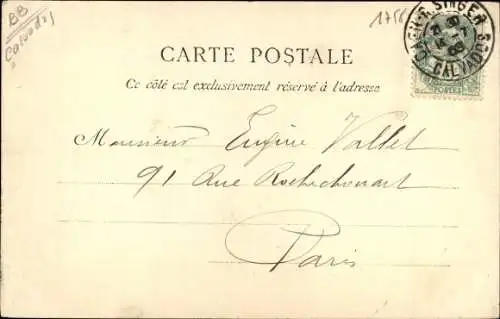 BB
Calvados
1756
CAEN-R. SINGER
CALVADOS
POSTES
CARTE POSTALE
Ce côté est exclusivement réservé à l'adresse
Monsieur Eugène Vallet
91 Rue Rochechouart
Paris